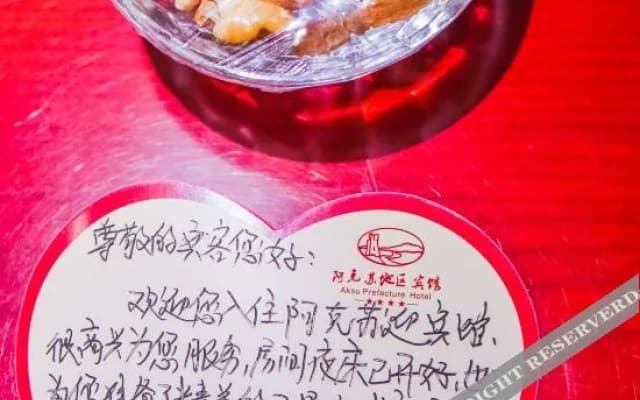 尊敬的宾客您好：
阿克苏地区宾馆
Aksu Prefecture Hotel
★★★★
欢迎您入住阿克苏迎宾馆、
很高兴为您服务，房间夜床已开好，也
为您
RIGHT RESERVED